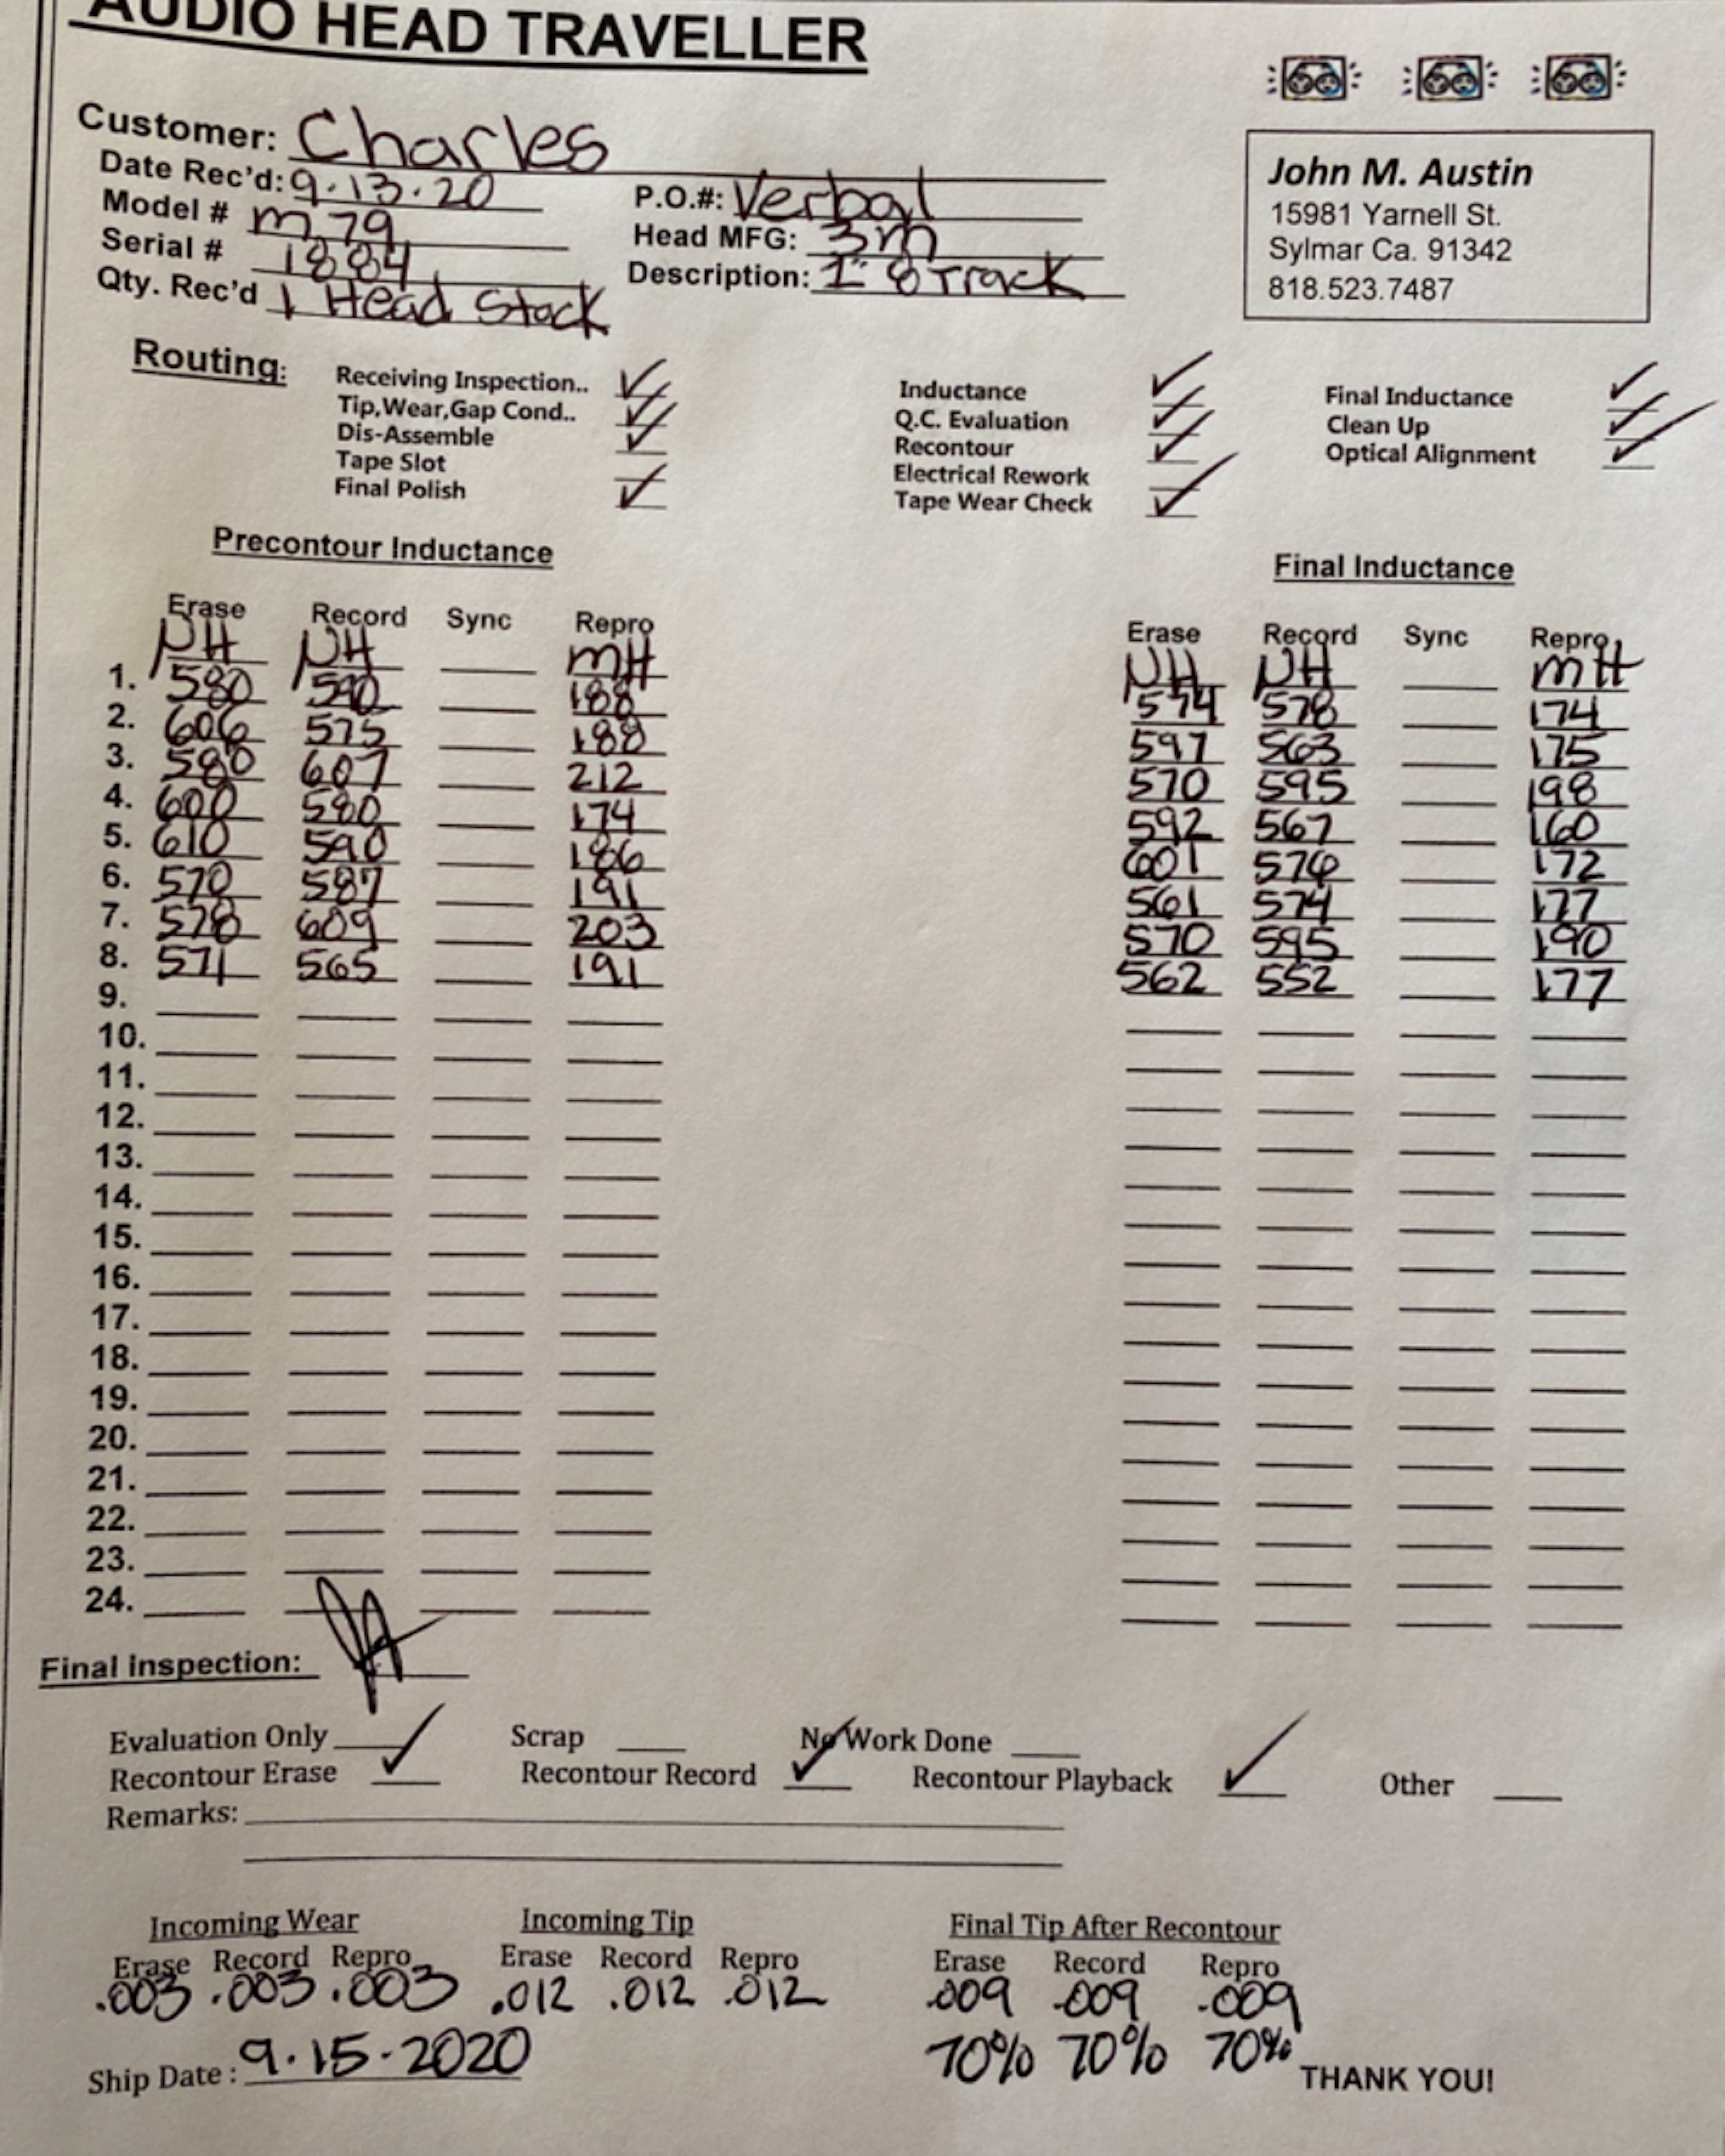 AUDIO HEAD TRAVELLER
Customer: Charles
Date Rec'd: 9.13.20 P.O.#: Verbal
Model # M79 Head MFG: 3M
Serial # 1884 Description: 1" 8 Track
Qty. Rec'd 1 Head Stack
John M. Austin
15981 Yarnell St.
Sylmar Ca. 91342
818.523.7487
Routing:
Receiving Inspection.. ✓ Inductance ✓ Final Inductance ✓
Tip,Wear,Gap Cond.. ✓ Q.C. Evaluation ✓ Clean Up ✓
Dis-Assemble ✓ Recontour ✓ Optical Alignment ✓
Tape Slot Electrical Rework
Final Polish ✓ Tape Wear Check ✓
Precontour Inductance Final Inductance
Erase Record Sync Repro Erase Record Sync Repro
µH µH mH µH µH mH
1. 580 590 188 574 578 174
2. 606 575 188 597 563 175
3. 580 607 212 570 595 198
4. 600 580 174 592 567 160
5. 610 590 186 601 576 172
6. 570 587 191 561 574 177
7. 578 609 203 570 595 190
8. 571 565 191 562 552 177
9.
10.
11.
12.
13.
14.
15.
16.
17.
18.
19.
20.
21.
22.
23.
24.
Final inspection: JA
Evaluation Only Scrap No Work Done
Recontour Erase ✓ Recontour Record ✓ Recontour Playback ✓ Other
Remarks:
Incoming Wear Incoming Tip Final Tip After Recontour
Erase Record Repro Erase Record Repro Erase Record Repro
.003 .003 .003 .012 .012 .012 .009 .009 .009
70% 70% 70%
Ship Date : 9.15.2020 THANK YOU!